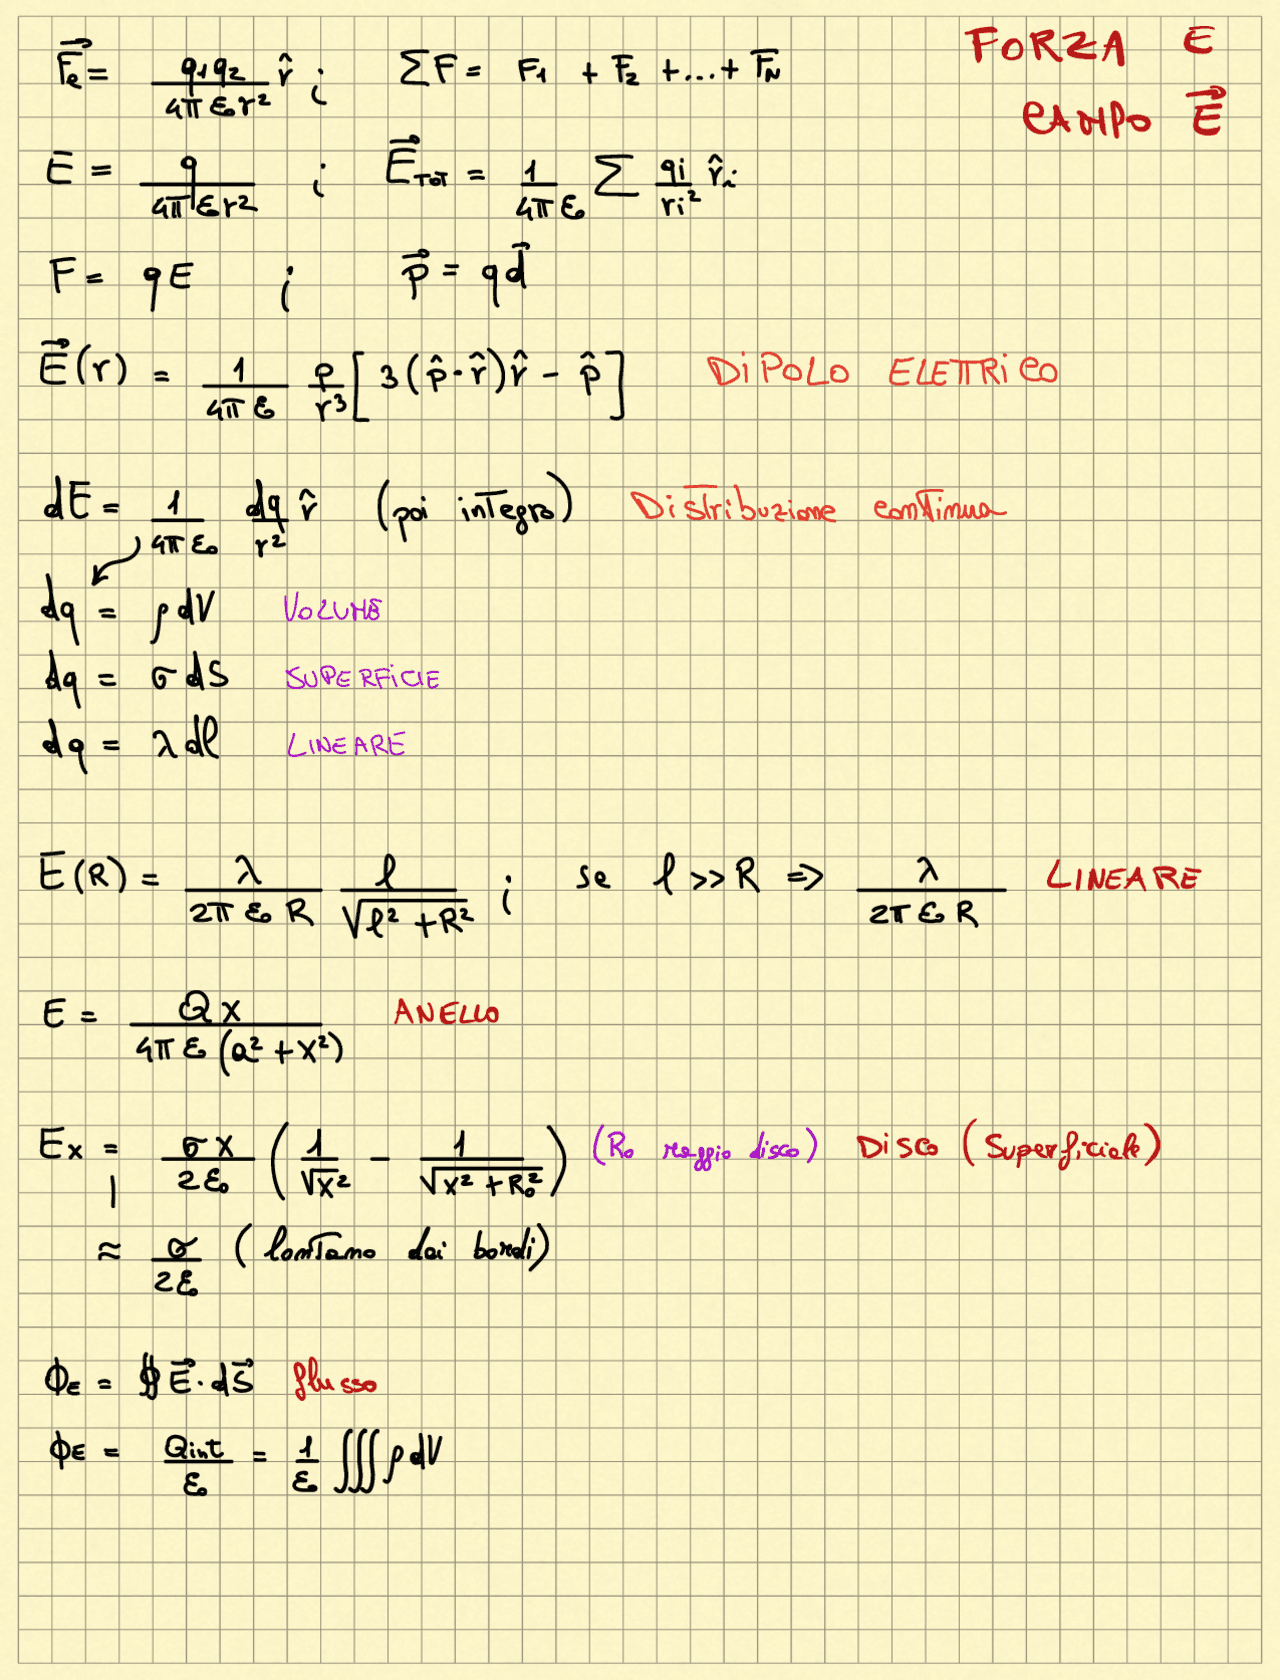 FORZA E
CAMPO E⃗
F⃗e = q1q2 / 4πε0r² r̂ ; ΣF = F1 + F2 + ... + FN
E = q / 4πε0r² ; E⃗TOT = 1 / 4πε0 Σ qi / ri² r̂i
F = qE ; p⃗ = qd⃗
E⃗(r) = 1 / 4πε0 p / r³ [3(p̂·r̂)r̂ - p̂] DIPOLO ELETTRICO
dE = 1 / 4πε0 dq / r² r̂ (poi integro) Distribuzione continua
dq = ρdV VOLUME
dq = σdS SUPERFICIE
dq = λdl LINEARE
E(R) = λ / 2πε0R l / √(l² + R²) ; se l >> R => λ / 2πε0R LINEARE
E = Qx / 4πε0(a² + x²) ANELLO
Ex = σx / 2ε0 (1 / √x² - 1 / √(x² + R0²)) (R0 raggio disco) DISCO (Superficiale)
≈ σ / 2ε0 (lontano dai bordi)
ΦE = ∯ E⃗·dS⃗ flusso
ΦE = Qint / ε0 = 1 / ε0 ∭ ρdV